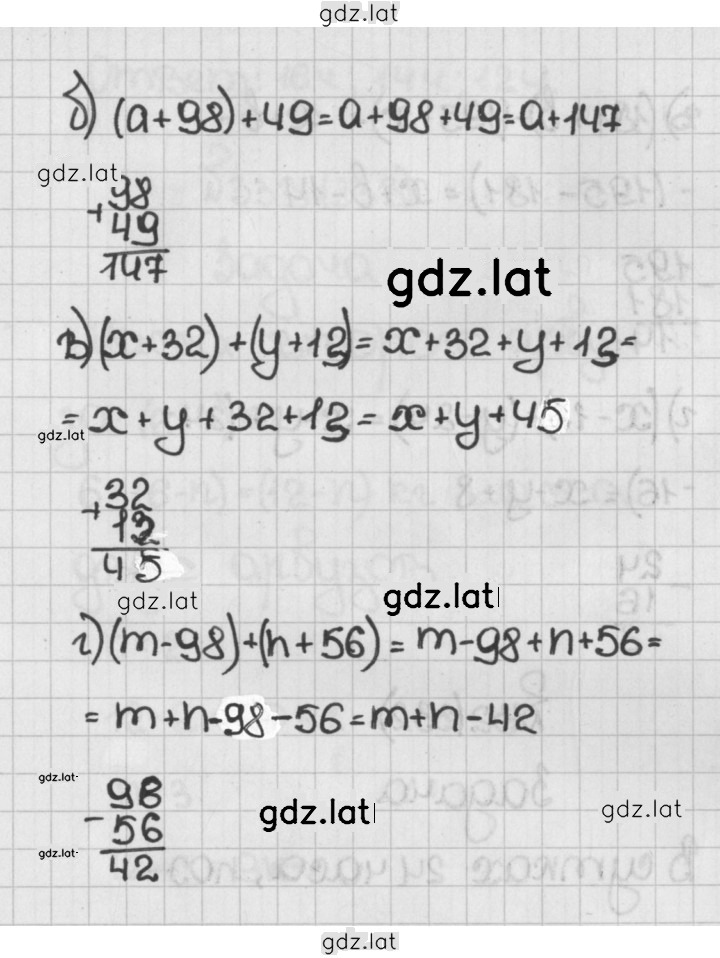 gdz.lat
б) (a+98)+49=a+98+49=a+147
gdz.lat
+ 98
49
147
gdz.lat
в) (x+32)+(y+13)=x+32+y+13=
=x+y+32+13=x+y+45
gdz.lat
+ 32
13
45
gdz.lat
gdz.lat
г) (m-98)+(n+56)=m-98+n+56=
=m+n-98-56=m+n-42
gdz.lat
- 98
56
42
gdz.lat
gdz.lat
gdz.lat
gdz.lat